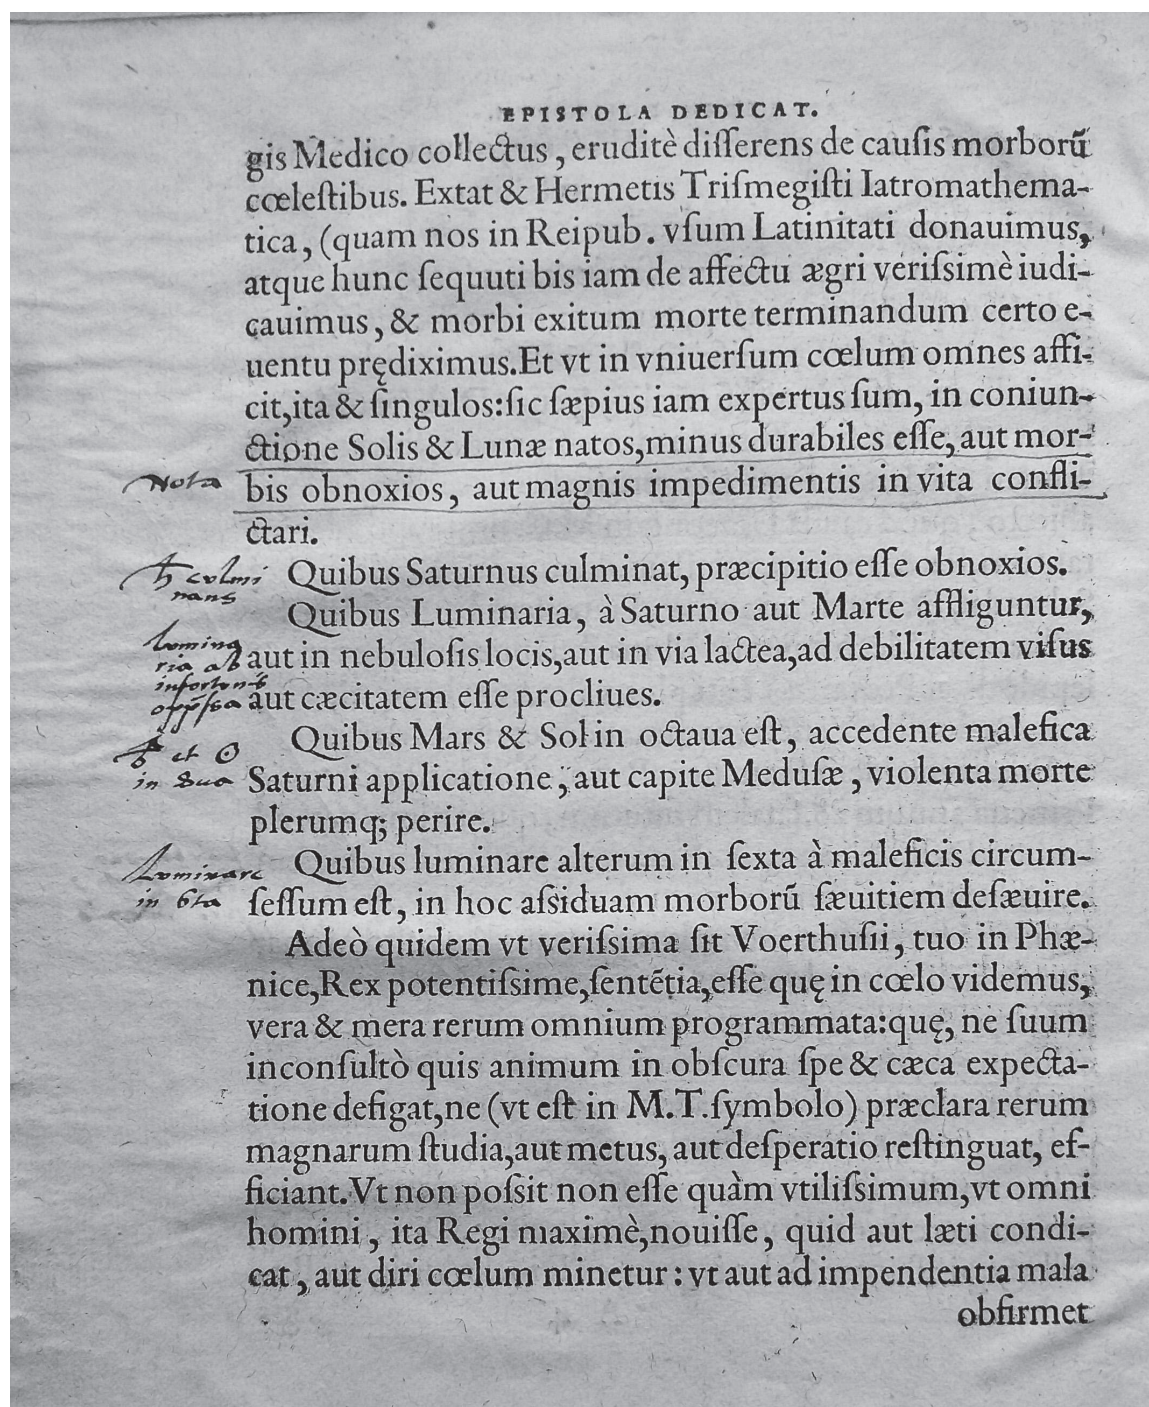 EPISTOLA DEDICAT.
gis Medico collectus, eruditè diſſerens de cauſis morborū
cœleſtibus. Extat & Hermetis Triſmegiſti Iatromathema-
tica, (quam nos in Reipub. vſum Latinitati donauimus,
atque hunc ſequuti bis iam de affectu ægri veriſsimè iudi-
cauimus, & morbi exitum morte terminandum certo e-
uentu prędiximus. Et vt in vniuerſum cœlum omnes affi-
cit, ita & ſingulos: ſic ſæpius iam expertus ſum, in coniun-
ctione Solis & Lunæ natos, minus durabiles eſſe, aut mor-
Nota
bis obnoxios, aut magnis impedimentis in vita confli-
ctari.
♄ culmi
nans
Quibus Saturnus culminat, præcipitio eſſe obnoxios.
Quibus Luminaria, à Saturno aut Marte affliguntur,
Lumina
ria ab
aut in nebuloſis locis, aut in via lactea, ad debilitatem viſus
aut cæcitatem eſſe procliues.
et ☉
in 8ua
Quibus Mars & Sol in octaua eſt, accedente malefica
Saturni applicatione, aut capite Meduſæ, violenta morte
plerumq; perire.
Luminare
in 6ta
Quibus luminare alterum in ſexta à maleficis circum-
ſeſſum eſt, in hoc aſsiduam morborū ſæuitiem deſæuire.
Adeò quidem vt veriſsima ſit Voerthuſii, tuo in Phæ-
nice, Rex potentiſsime, ſentētia, eſſe quę in cœlo videmus,
vera & mera rerum omnium programmata: quę, ne ſuum
inconſultò quis animum in obſcura ſpe & cæca expecta-
tione defigat, ne (vt eſt in M.T. ſymbolo) præclara rerum
magnarum ſtudia, aut metus, aut deſperatio reſtinguat, ef-
ficiant. Vt non poſsit non eſſe quàm vtiliſsimum, vt omni
homini, ita Regi maximè, nouiſſe, quid aut læti condi-
cat, aut diri cœlum minetur: vt aut ad impendentia mala
obfirmet